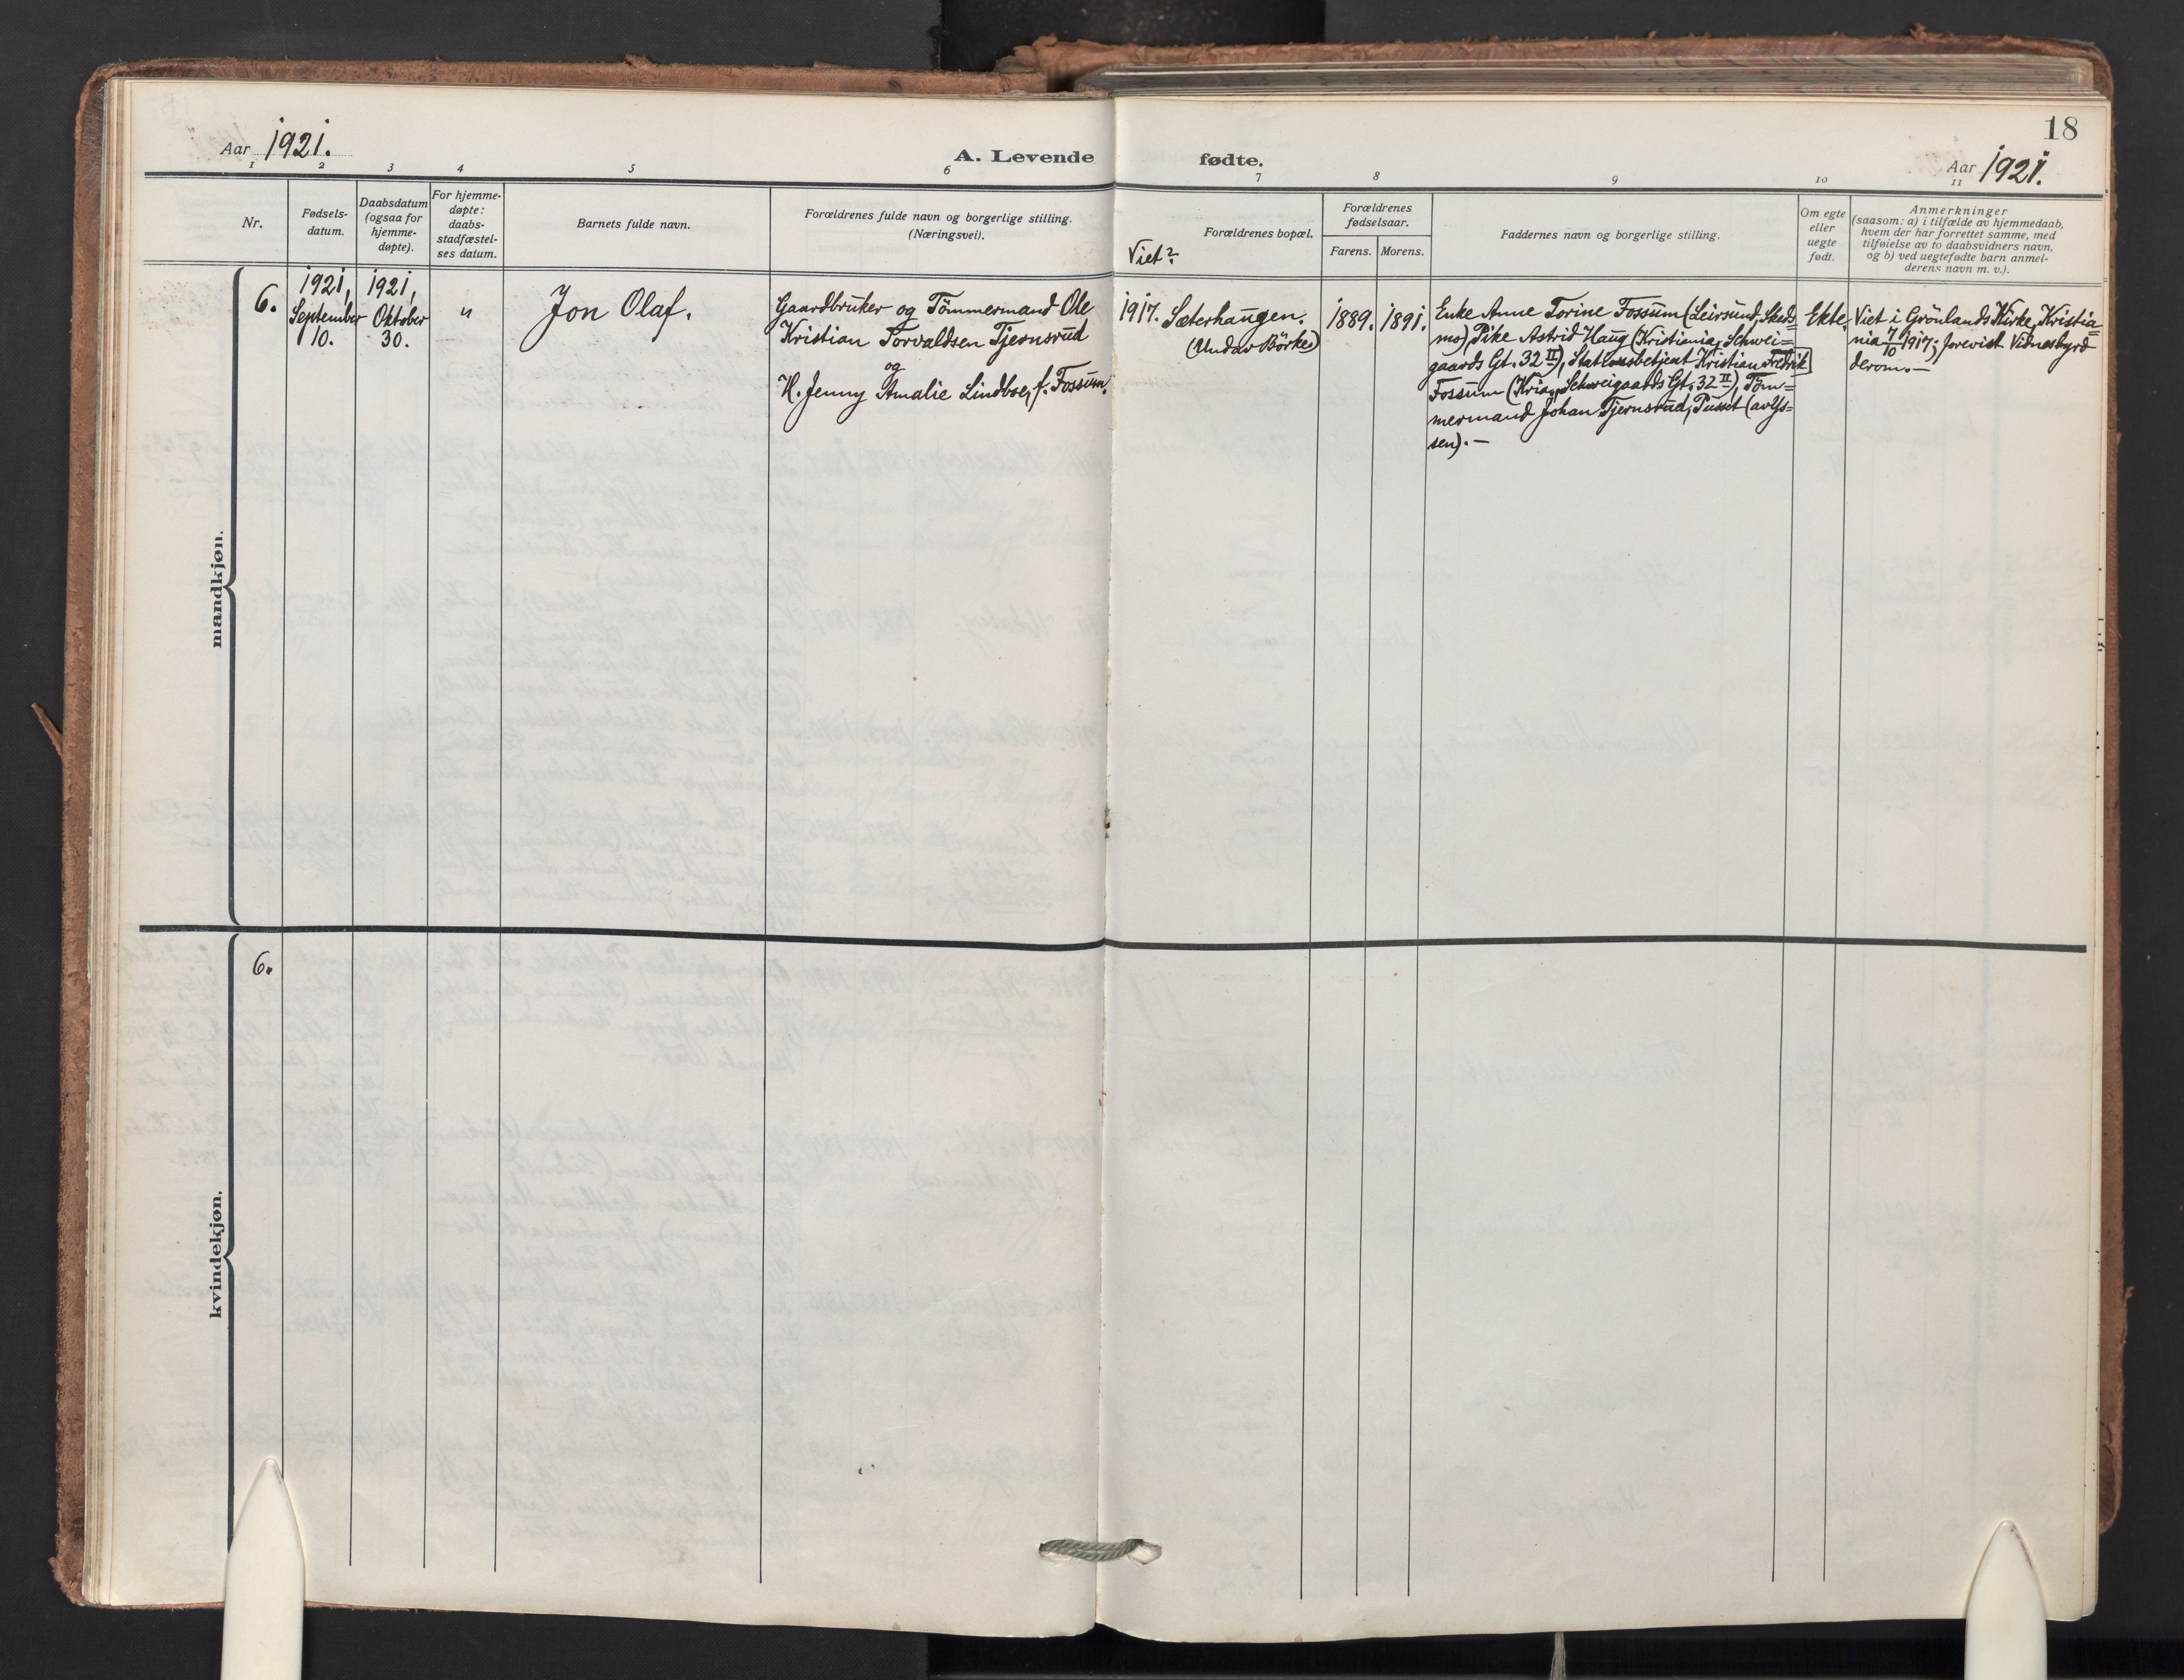 18
Aar 1921.
A. Levende fødte.
Aar 1921.
1 2 3 4 5 6 7 8 9 10 11
Nr.
Fødsels-
datum.
Daabsdatum
(ogsaa for
hjemme-
døpte).
For hjemme-
døpte:
daabs-
stadfæstel-
ses datum.
Barnets fulde navn.
Forældrenes fulde navn og borgerlige stilling.
(Næringsvei).
Viet?
Forældrenes bopæl.
Forældrenes
fødselsaar.
Farens. Morens.
Faddernes navn og borgerlige stilling.
Om egte
eller
uegte
født.
Anmerkninger
(saasom: a) i tilfælde av hjemmedaab,
hvem der har forrettet samme, med
tilføielse av to daabsvidners navn,
og b) ved uegtefødte barn anmel-
derens navn m. v.).
mandkjøn.
6.
1921,
September
10.
1921,
Oktober
30.
"
Jon Olaf.
Gaardbruker og Tömmermand Ole
Kristian Torvaldsen Tjernsrud
og
H. Jenny Amalie Lindboe, f. Fossum.
1917.
Sæterhaugen.
(Undav Börke)
1889.
1891.
Enke Anne Torine Fossum (Leirsund, Skeds=
mo) Pike Astrid Haug (Kristiania, Schwei=
gaards Gt. 32 II), Stationsbetjent Kristian Fredrik
Fossum (Kria., Schweigaards Gt. 32 II), Töm=
mermand Johan Tjernsrud, Pusset (av
sen). —
Ekte.
Viet i Grönlands Kirke, Kristia=
nia 7/10 1917; forevist Vidnesbyrd
derom. —
kvindekjøn.
6.